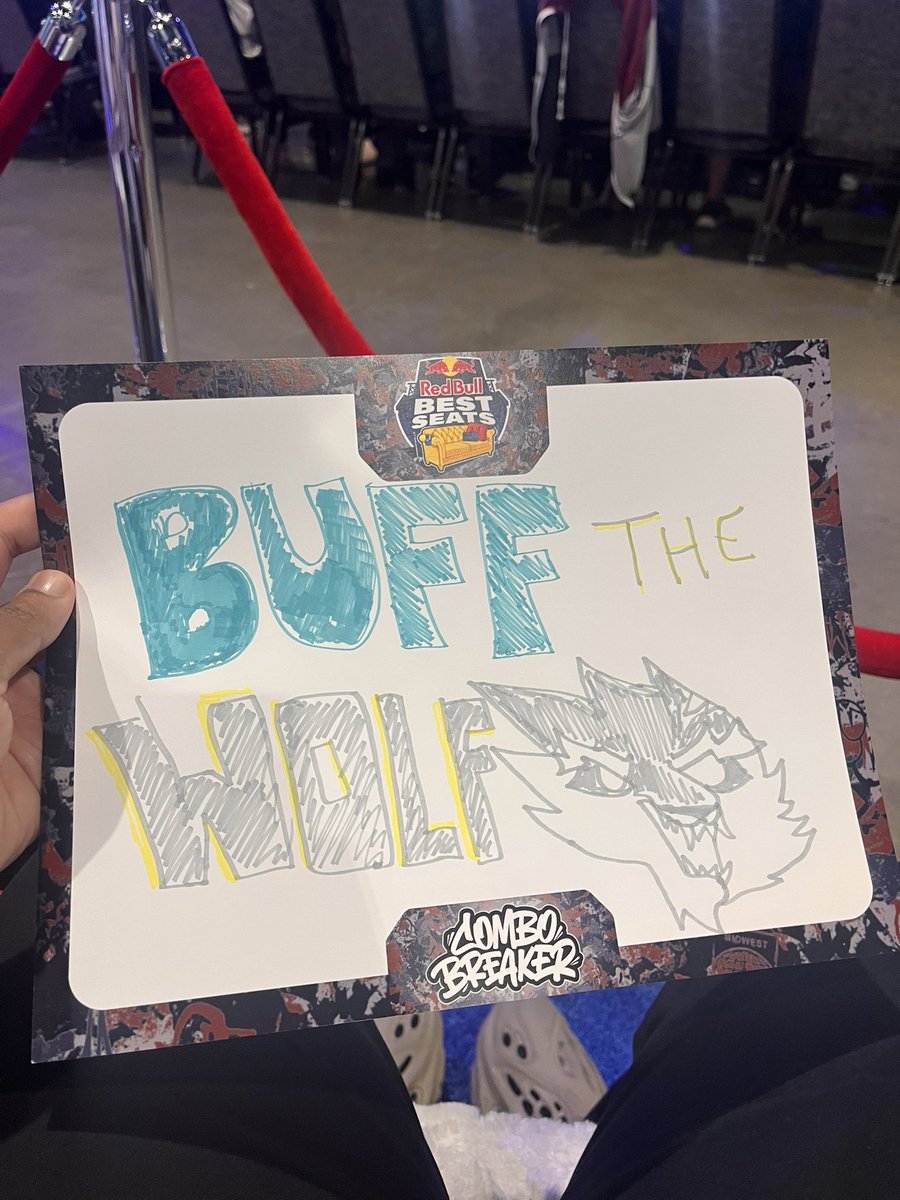 Red Bull
BEST
SEATS
BUFF THE
WOLF
COMBO
BREAKER
MIDWEST